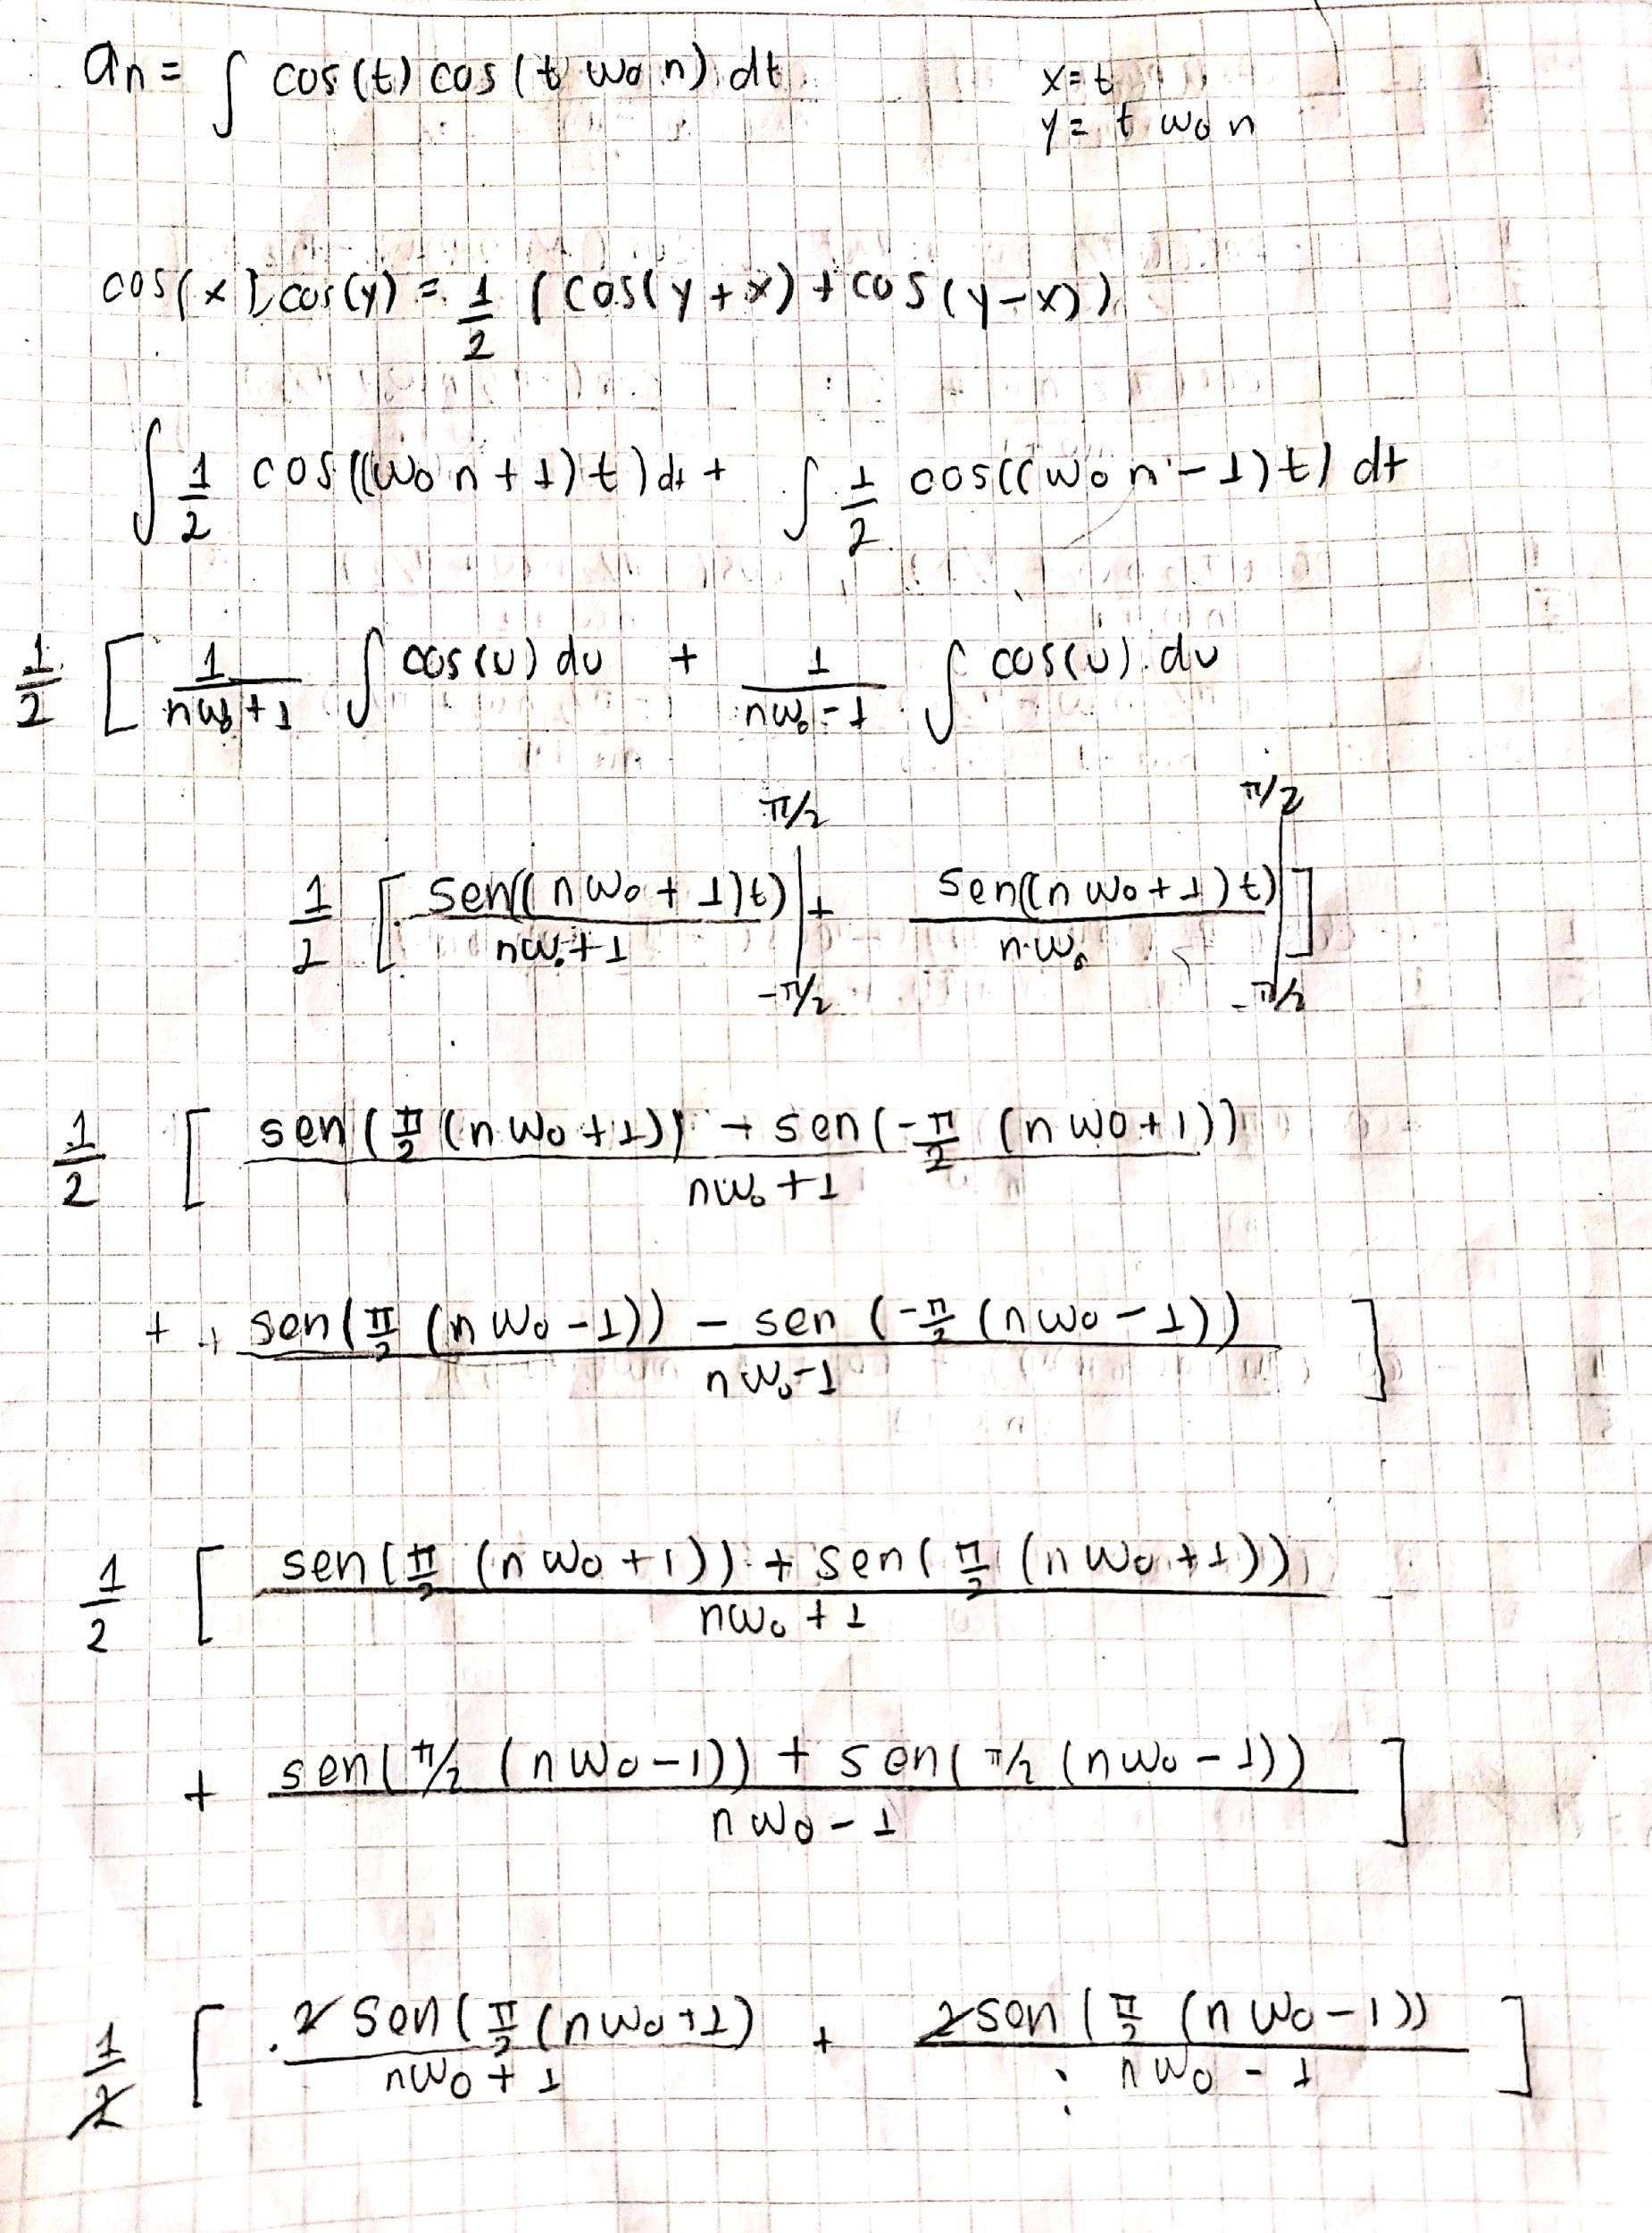 an = ∫ cos(t) cos(t w₀ n) dt    x = t
y = t w₀ n
cos(x) cos(y) = 1/2 (cos(y + x) + cos(y - x))
∫ 1/2 cos((w₀ n + 1) t) dt + ∫ 1/2 cos((w₀ n - 1) t) dt
1/2 [ 1/(nw₀ + 1) ∫ cos(u) du + 1/(nw₀ - 1) ∫ cos(u) du
1/2 [ sen((n w₀ + 1) t)/(nw₀ + 1) |_{-π/2}^{π/2} + sen((n w₀ + 1) t)/(n w₀) |_{-π/2}^{π/2} ]
1/2 [ (sen(π/2 (n w₀ + 1)) - sen(-π/2 (n w₀ + 1)))/(nw₀ + 1)
+ + (sen(π/2 (n w₀ - 1)) - sen(-π/2 (n w₀ - 1)))/(n w₀ - 1) ]
1/2 [ (sen(π/2 (n w₀ + 1)) + sen(π/2 (n w₀ + 1)))/(nw₀ + 1)
+ (sen(π/2 (n w₀ - 1)) + sen(π/2 (n w₀ - 1)))/(n w₀ - 1) ]
1/2 [ 2 sen(π/2 (n w₀ + 1)/(nw₀ + 1) + 2 sen(π/2 (n w₀ - 1))/(n w₀ - 1) ]